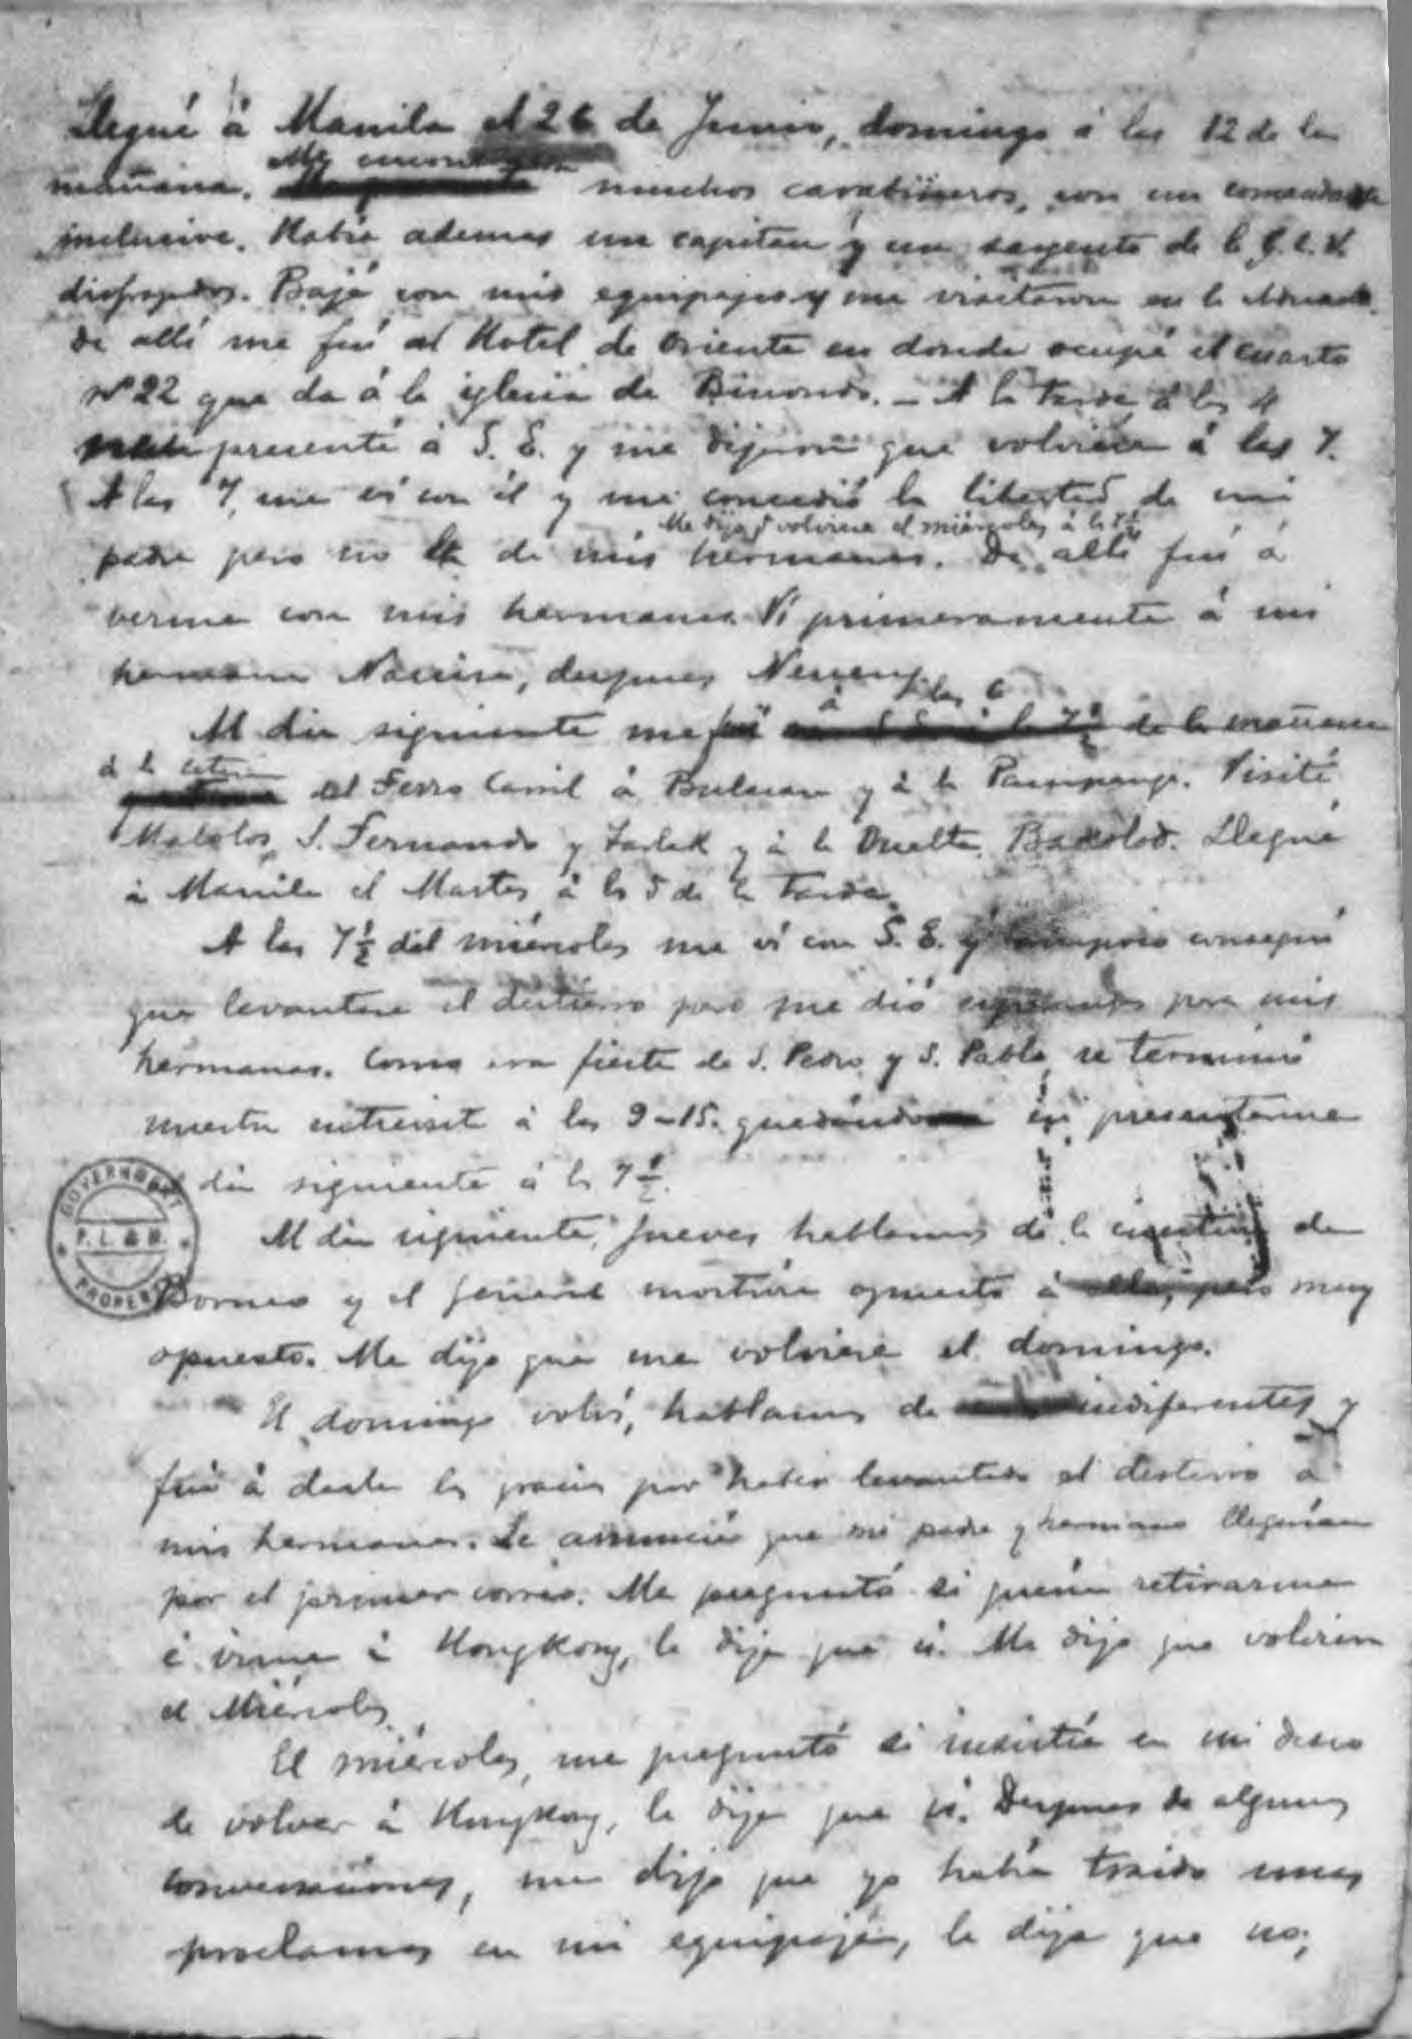 Llegué á Manila el 26 de Junio, domingo á las 12 de la
Me encontré con
mañana. muchos carabineros, con un comandante
inclusive. Había ademas un capitan y un sargento de la G.C.V.
disfrazados. Bajé con mis equipajes y me visitaron en la Aduana.
De allí me fuí al Hotel de Oriente en donde ocupé el cuarto
nº 22 que da á la iglesia de Binondo. — A la tarde á las 4
me presenté á S. E. y me dijeron que volviese á las 7.
A las 7, me ví con él y me concedió la libertad de mi
Me dijo q volviese el miércoles á las 7½
padre pero no la de mis hermanas. De allí fuí á
verme con mis hermanas. Ví primeramente á mi
hermana Narcisa, despues Neneng.
á las 6
Al dia siguiente me fuí á de la mañana
á la estacion
el Ferro Carril á Bulacan y á la Pampanga. Visité
Malolos, S. Fernando y Tarlak y á la Vuelta, Bakolod. Llegué
á Manila el Martes á las 5 de la tarde.
A las 7½ del miércoles me ví con S. E. y tampoco conseguí
que levantase el destierro pero me dió esperanzas para mis
hermanas. Como era fiesta de S. Pedro y S. Pablo se terminó
nuestra entrevista á las 9-15. quedando en presentarme
al dia siguiente á las 7½.
Al dia siguiente, jueves hablamos de la cuestion de
Borneo y el general mostróse opuesto á ella, pero muy
opuesto. Me dijo que me volviese el domingo.
El domingo volví, hablamos de indiferentes y
fuí á darle las gracias por haber levantado el destierro á
mis hermanas. Le anuncié que mi padre y hermano llegarían
por el primer correo. Me preguntó si quería retirarme
é irme á Hongkong, le dije que sí. Me dijo que volviese
el Miércoles.
El miércoles, me preguntó si insistía en mi deseo
de volver á Hongkong, le dije que sí. Despues de algunas
conversaciones, me dijo que yo había traido unas
proclamas en mi equipaje, le dije que no;
GOVERNMENT
P. L. & M.
PROPERTY